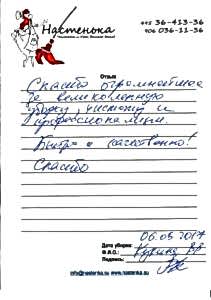 Настенька
495 36-413-36
906 036-11-36
Отзыв
Спасибо огромнейшее
за великолепную
уборку, чистоту и
профессионализм.
Быстро и качественно!
Спасибо
Дата уборки: 06.05 2017
Ф.И.О.:
Подпись:
info@nastenka.su www.nastenka.su